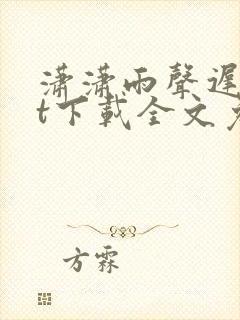 瀟瀟雨聲遲
t下載全文
方霖